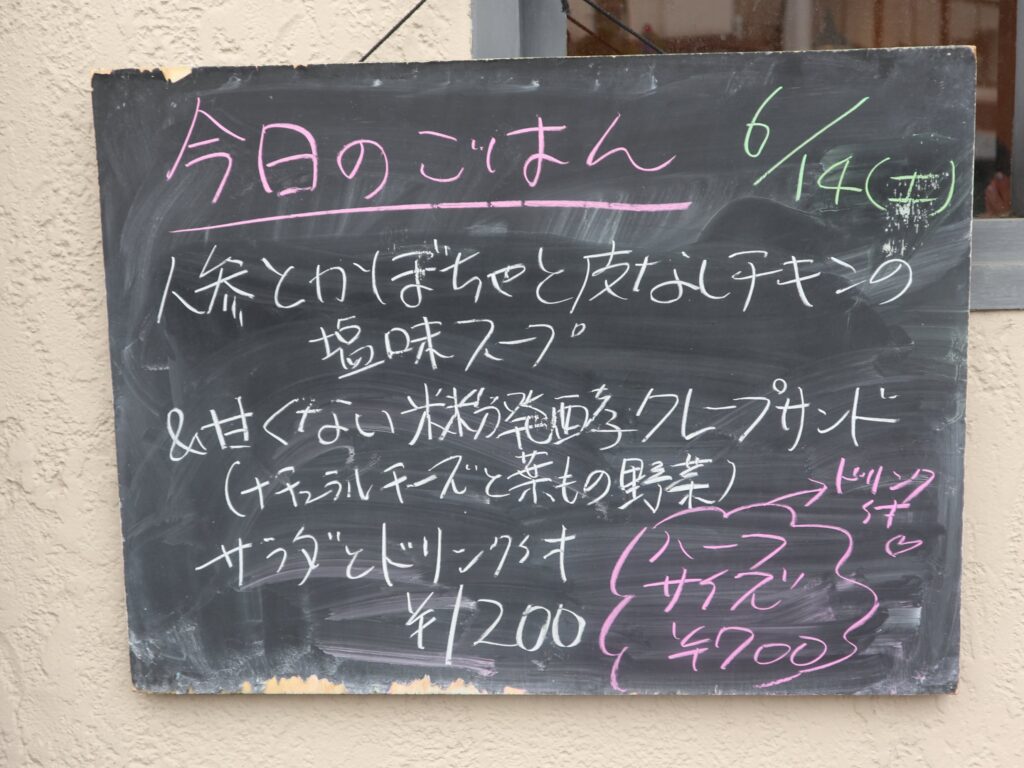 今日のごはん
6/14(土)
人参とかぼちゃと皮なしチキンの
塩味スープ
&甘くない米粉発酵クレープサンド
(ナチュラルチーズと葉もの野菜)
サラダとドリンク付
¥1200
ハーフ
サイズ
¥700
ドリンク
付♡